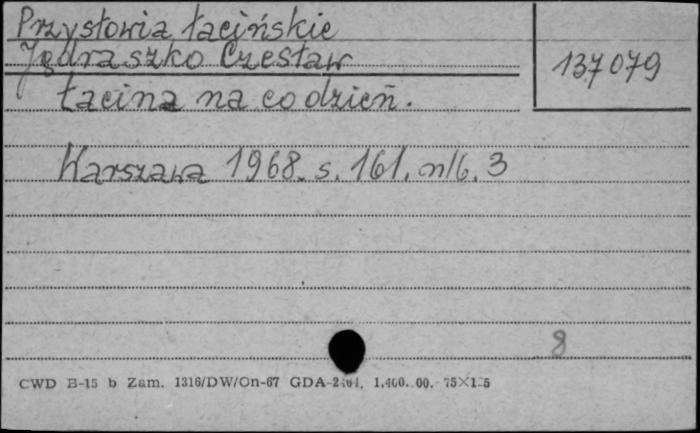 Przysłowia łacińskie
Jędraszko Czesław
137079
Łacina na co dzień.
Warszawa 1968. s. 161. nlb. 3
8
CWD B-15 b Zam. 1316/DW/On-67 GDA-2404. 1.400.00. 75×125